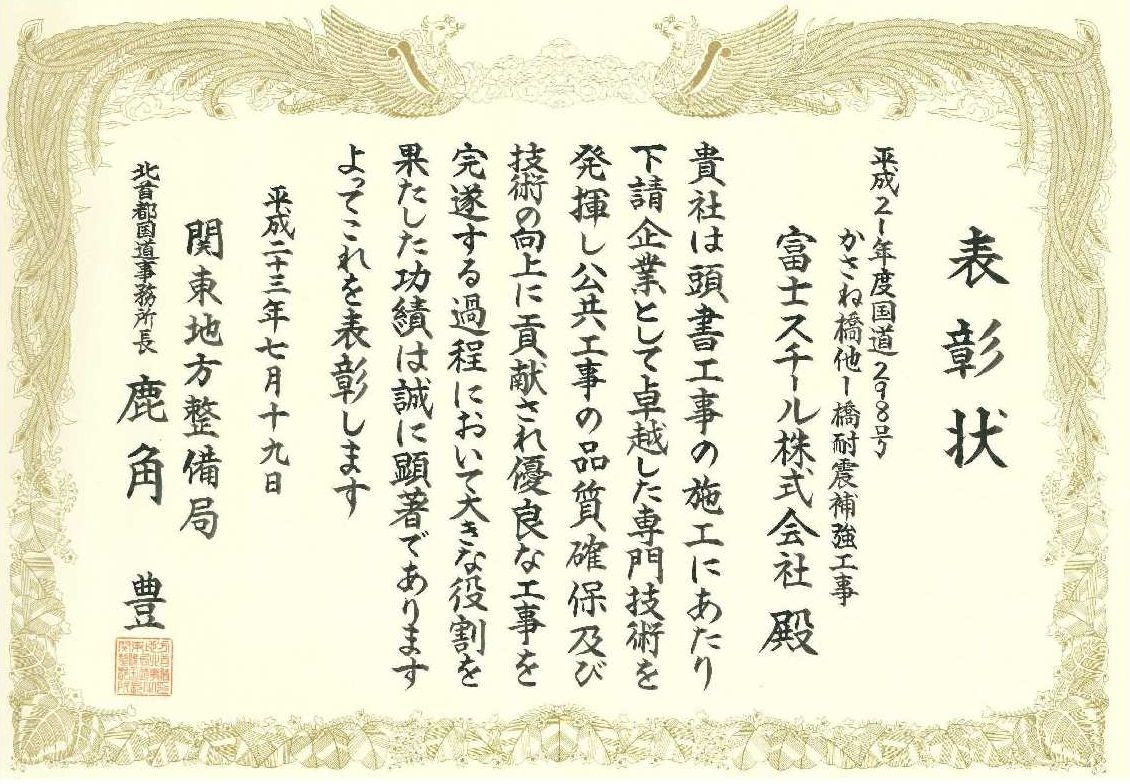 表彰状
平成21年度国道298号
かさね橋他1橋耐震補強工事
富士スチール株式会社 殿
貴社は頭書工事の施工にあたり
下請企業として卓越した専門技術を
発揮し公共工事の品質確保及び
技術の向上に貢献され優良な工事を
完遂する過程において大きな役割を
果たした功績は誠に顕著であります
よってこれを表彰します
平成二十三年七月十九日
関東地方整備局
北首都国道事務所長 鹿角 豊